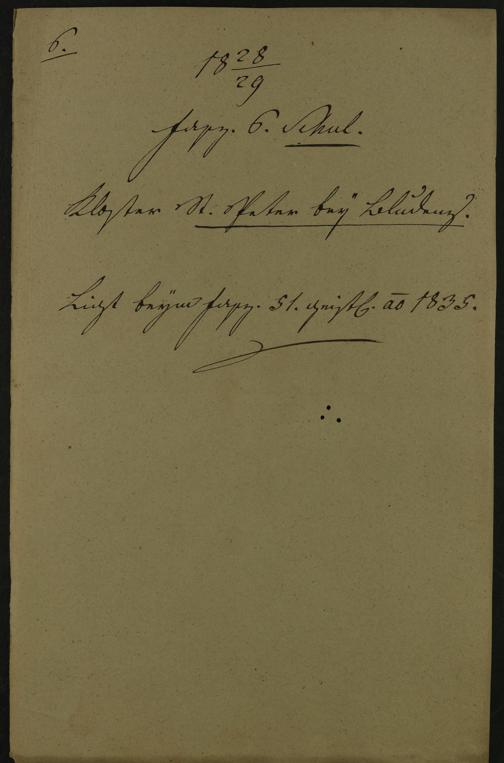 6.
18 28/29
Fasz. 6. Schul.
Kloster St. Peter bey Bludenz.
Liegt beym Fasz. 51. geistl. ao 1835.